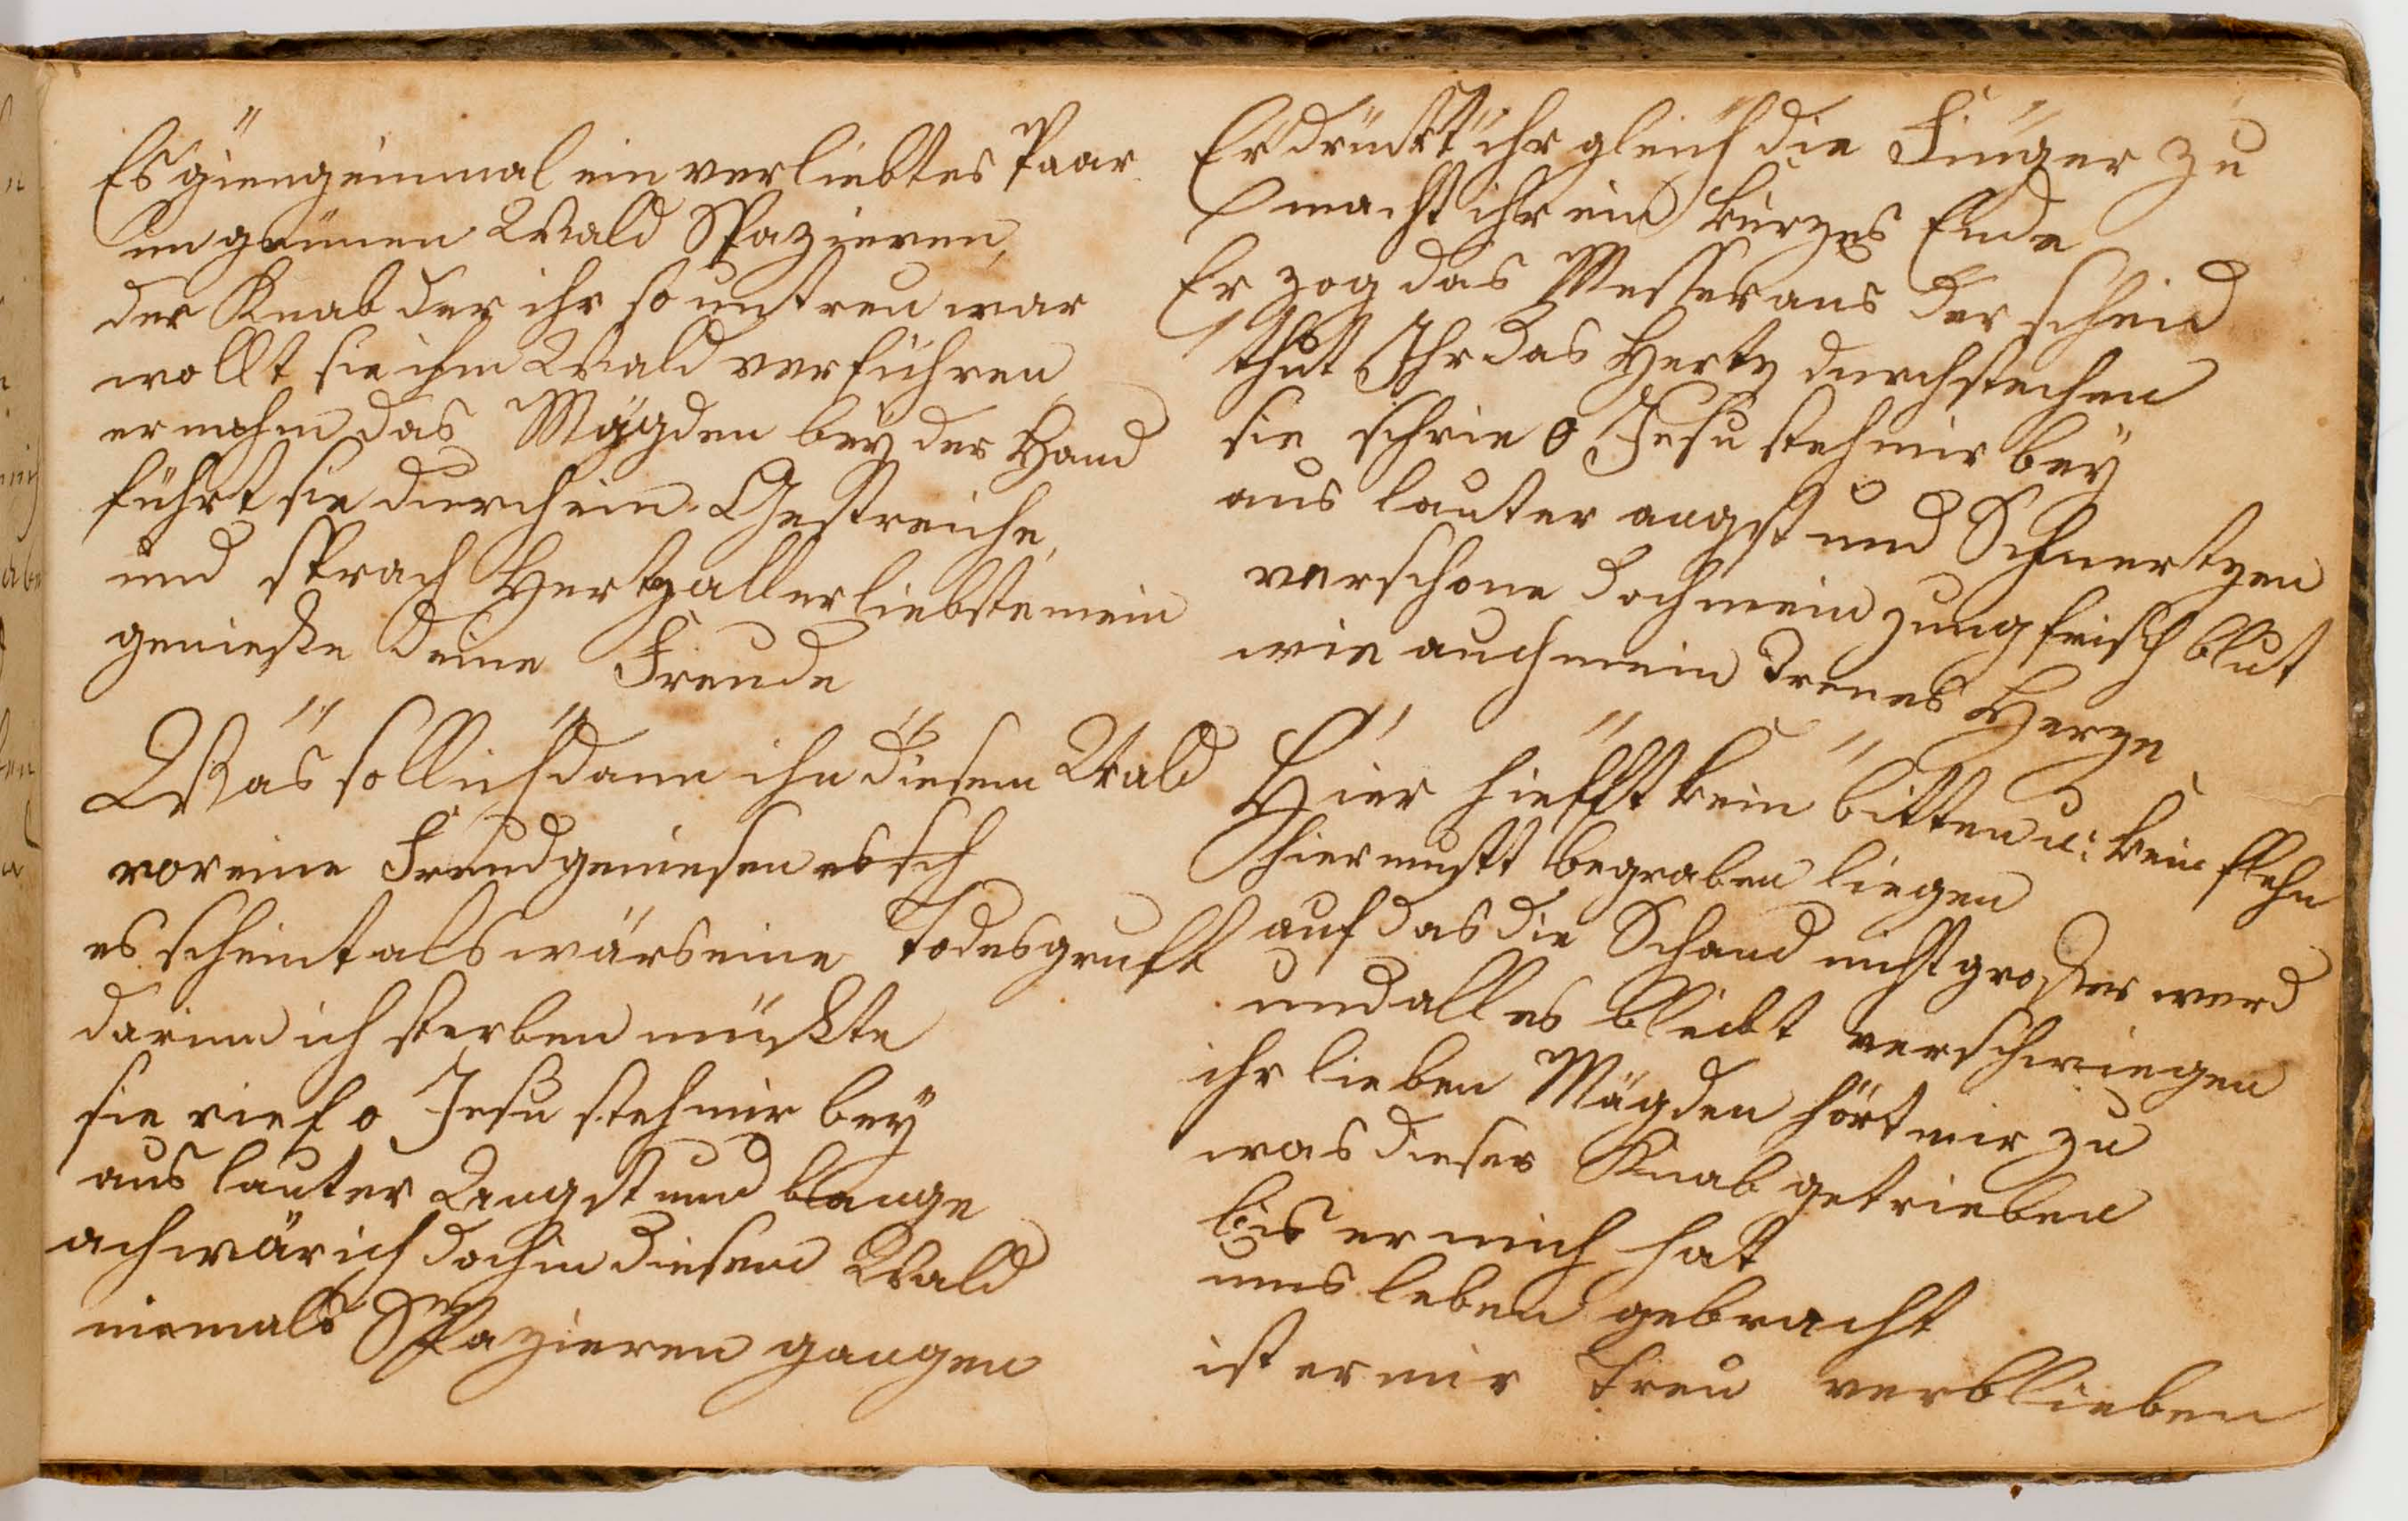 Es gieng einmal ein verliebtes Paar
im grünen Wald Spazieren,
der Knab der ihr so untreu war
wollt sie ihm Wald verführen
er nahm das Mägden bey der Hand
führt sie durch ein Gestreiche,
und sprach Hertzallerliebste mein
genieße deine Freude
Was soll ich dann ihn diesem Wald
vor eine Freud geniesen
es scheint als wärs eine Todesgruft
darinn ich sterben müßte
sie rief o Jesu steh mir bey
aus lauter Angst und bange
ach wär ich doch in diesem Wald
niemals Spazieren gangen
Er drückt ihr gleich die Finger zu
macht ihr ein kurzes Ende
Er zog das Messer aus der scheid
thut Ihr das Hertz durchstechen
sie schrie o Jesu steh mir bey
aus lauter angst und Schmertzen
verschone doch mein jungfrisch blut
wie auch mein Treues Herze
Hier hielfft kein bitten u: kein flehn
hier must begraben liegen
auf das die Schand nicht großer werd
und alles bleibt verschwiegen
ihr lieben Mägden hört mir zu
was dieser Knab getrieben
bis er mich hat
ums leben gebracht
ist er mir Treu verblieben